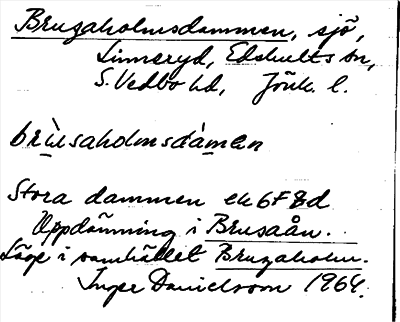 Bruzaholmsdammen, sjö,
Linneryd, Edshults sn,
S. Vedbo hd, Jönk. l.
brùsahɷlmsdàmen
Stora dammen ek 6F 8d
Uppdämning i Brusaån.
Läge i samhället Bruzaholm.
Inger Danielsson 1964.